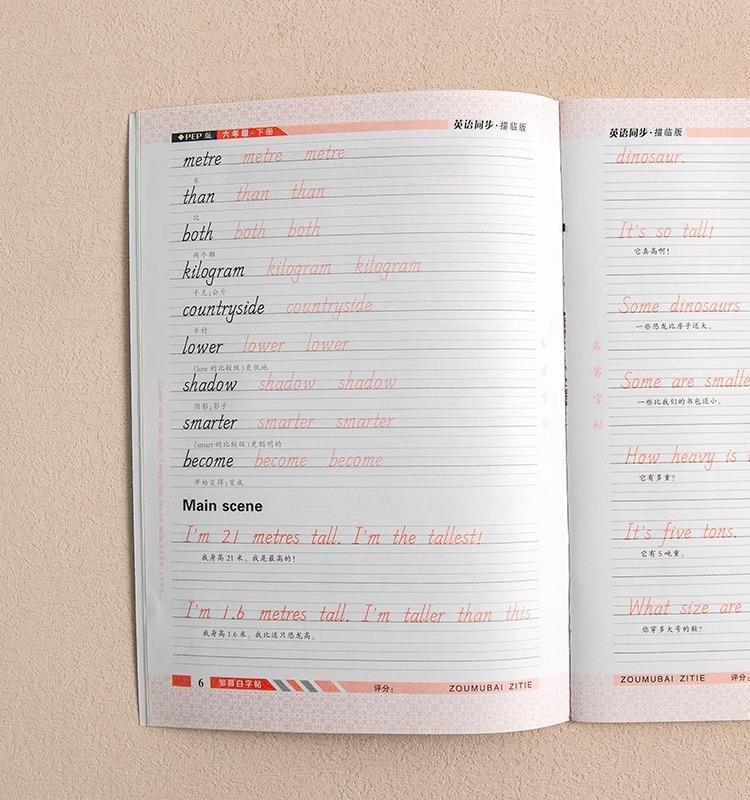 ◆PEP版 六年级·下册 英语同步·描临版
metre metre metre
米
than than than
比
both both both
两个都
kilogram kilogram kilogram
千克;公斤
countryside countryside
乡村
lower lower lower
(low 的比较级)更低地
shadow shadow shadow
阴影;影子
smarter smarter smarter
(smart 的比较级)更聪明的
become become become
开始变得;变成
Main scene
I'm 21 metres tall. I'm the tallest!
我身高 21 米。我是最高的!
I'm 1.6 metres tall. I'm taller than this
我身高 1.6 米。我比这只恐龙高。
6 邹慕白字帖 评分: ZOUMUBAI ZITIE
英语同步·描临版
dinosaur.
It's so tall!
它真高啊!
Some dinosaurs
一些恐龙比房子还大。
Some are smalle
一些比我们的书包还小。
How heavy is
它有多重?
It's five tons.
它有 5 吨重。
What size are
你穿多大号的鞋?
ZOUMUBAI ZITIE 评分:
名家字帖